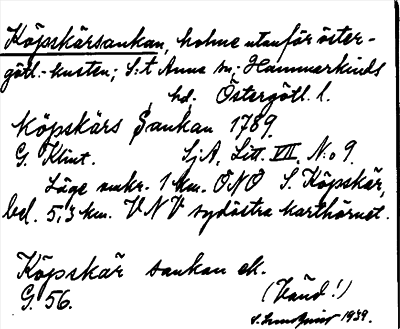 Köpskärsankan, holme utanför öster-
götl.-kusten; S:t Anna sn; Hammarkinds
hd. Östergötl. l.
Köpskärs Sankan 1789.
G. Klint. SjA, Litt. VII, N:o 9.
Läge omkr. 1 km. ONO S. Köpskär,
bel. 5,3 km. VNV sydöstra karthörnet.
Köpskär sankan ek.
G. 56. (Vänd!)
1939.